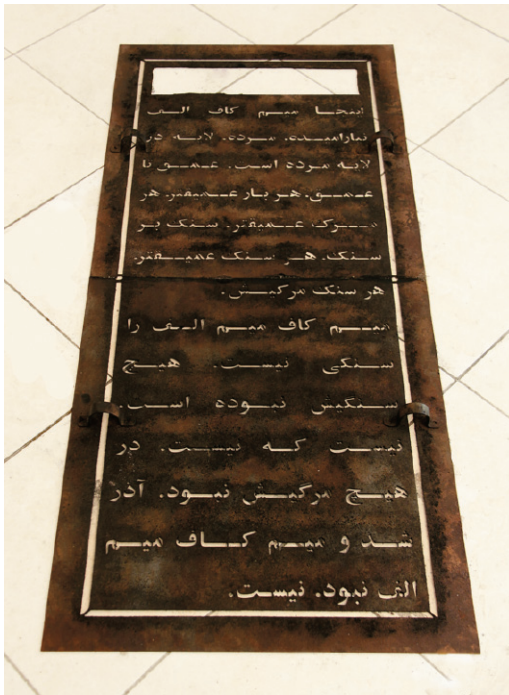 اینجا میم کاف الف
نیارامیده. مرده. لابه در
لابه مرده است. عمق با
عمق. هر بار عمیقتر. هر
مرگ عمیقتر. سنگ بر
سنگ. هر سنگ عمیقتر.
هر سنگ مرگیش.
میم کاف میم الف را
سنگی نیست. هیچ
سنگیش نبوده است.
نیست که نیست. در
هیچ مرگیش نبود. آذر
شد و میم کاف میم
الف نبود. نیست.